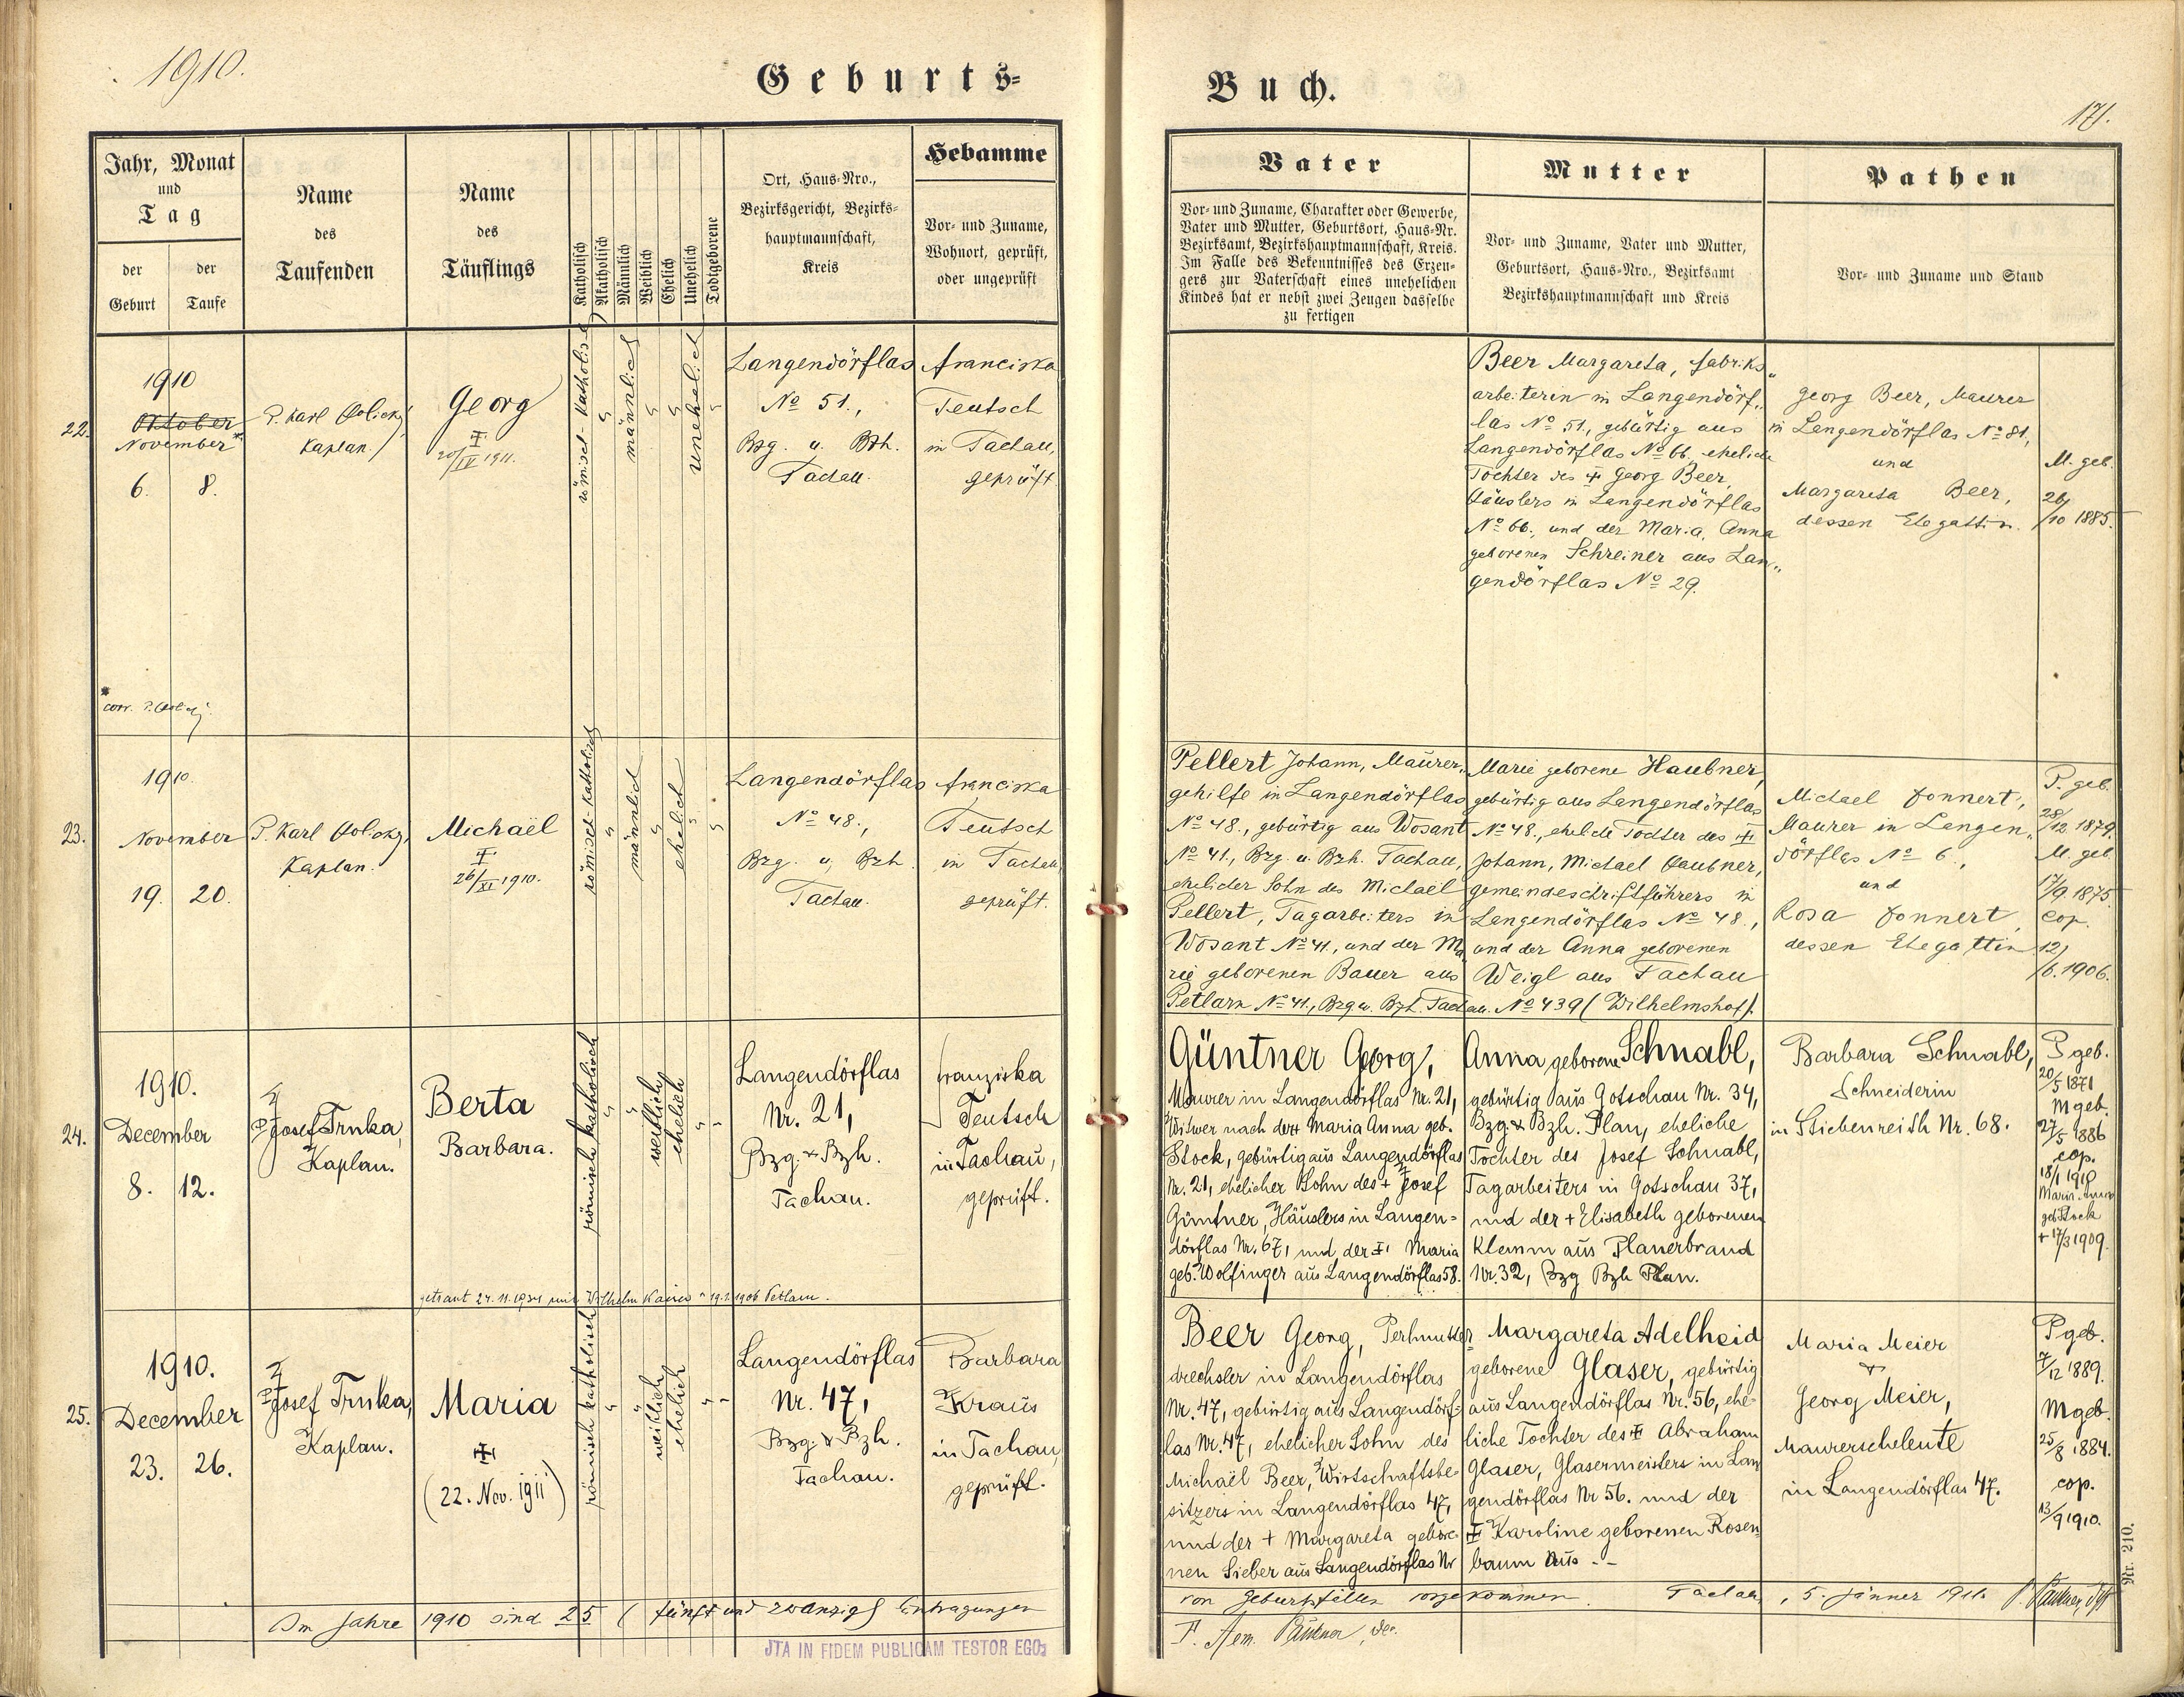 1910.
Geburts-
Jahr, Monat
und
Tag
der
Geburt
der
Taufe
Name
des
Taufenden
Name
des
Täuflings
Katholisch
Akatholisch
Männlich
Weiblich
Ehelich
Unehelich
Todtgeborene
Ort, Haus-Nro.,
Bezirksgericht, Bezirks-
hauptmannschaft,
Kreis
Hebamme
Vor- und Zuname,
Wohnort, geprüft,
oder ungeprüft
22.
1910
Oktober
November*
6. 8.
P. Karl
Kaplan.
Georg
✝
20/IV 1911.
römisch-katholisch
männlich
unehelich
Langendörflas
No 51.,
Bzg. u. Bzh.
Tachau.
Franciska
Teutsch
in Tachau,
geprüft.
*
corr. P.
23.
1910.
November
19. 20.
P. Karl
Kaplan.
Michaël
✝
26/XI 1910.
römisch-katholisch
männlich
ehelich
Langendörflas
No 48.,
Bzg. u. Bzh.
Tachau.
Franciska
Teutsch
in Tachau
geprüft.
24.
1910.
December
8. 12.
P. Josef Trnka,
Kaplan.
Berta
Barbara.
römisch katholisch
weiblich
ehelich
Langendörflas
Nr. 21,
Bzg. & Bzh.
Tachau.
Franziska
Teutsch
in Tachau,
geprüft.
getraut 24. 11. 1931 mit Wilhelm Kaiser * 19.2.1906 Petlarn.
25.
1910.
December
23. 26.
P. Josef Trnka,
Kaplan.
Maria
✝
(22. Nov. 1911)
römisch katholisch
weiblich
ehelich
Langendörflas
Nr. 47,
Bzg. & Bzh.
Tachau.
Barbara
Kraus
in Tachau,
geprüft.
Im Jahre 1910 sind 25 (fünf und zwanzig) Eintragungen
JTA IN FIDEM PUBLICAM TESTOR EGO:
Buch.
171.
Vater
Vor- und Zuname, Charakter oder Gewerbe,
Vater und Mutter, Geburtsort, Haus-Nr.
Bezirksamt, Bezirkshauptmannschaft, Kreis.
Im Falle des Bekenntnisses des Erzeu-
gers zur Vaterschaft eines unehelichen
Kindes hat er nebst zwei Zeugen dasselbe
zu fertigen
Mutter
Vor- und Zuname, Vater und Mutter,
Geburtsort, Haus-Nro., Bezirksamt
Bezirkshauptmannschaft und Kreis
Pathen
Vor- und Zuname und Stand
Beer Margareta, Fabriks„
arbeiterin in Langendörf„
las No 51., gebürtig aus
Langendörflas No 66, eheliche
Tochter des ✝ Georg Beer,
Häuslers in Langendörflas
No 66., und der Maria Anna
geborenen Schreiner aus Lan„
gendörflas No 29.
Georg Beer, Maurer
in Langendörflas No 81,
und
Margareta Beer,
dessen Ehegattin.
M. geb.
26/10 1885.
Pellert Johann, Maurer„
gehilfe in Langendörflas
No 48., gebürtig aus Wosant
No 41., Bzg. u. Bzh. Tachau,
ehelicher Sohn des Michaël
Pellert, Tagarbeiters in
Wosant No 41., und der Ma„
rie geborenen Bauer aus
Petlarn No 41., Bzg u. Bzh. Tachau.
Marie geborene Haubner,
gebürtig aus Langendörflas
No 48., eheliche Tochter des ✝
Johann, Michael Haubner,
Gemeindeschriftführers in
Langendörflas No 48.,
und der Anna geborenen
Weigl aus Tachau
No 439 (Wilhelmshof).
Michael Fonnert,
Maurer in Langen„
dörflas No 6.,
und
Rosa Fonnert,
dessen Ehegattin
P. geb.
28/12 1879.
M. geb.
17/9. 1875.
cop.
12/6. 1906.
Güntner Georg,
Maurer in Langendörflas Nr. 21,
Witwer nach der ✝ Maria Anna geb.
Stock, gebürtig aus Langendörflas
Nr. 21, ehelicher Sohn des + Josef
Güntner, Häuslers in Langen-
dörflas Nr. 67, und der ✝ Maria
geb. Wolfinger aus Langendörflas 58.
Anna geborene Schnabl,
gebürtig aus Gotschau Nr. 34,
Bzg. & Bzh. Plan, eheliche
Tochter des Josef Schnabl,
Tagarbeiters in Gotschau 37,
und der + Elisabeth geborenen
Klemm aus Planerbrand
Nr. 32, Bzg Bzh Plan.
Barbara Schnabl,
Schneiderin
in Stiebenreith Nr. 68.
P geb.
20/5 1871
M geb.
27/5 1886
cop.
18/1 1910
Maria Anna
geb Stock
+ 17/3 1909.
Beer Georg, Perlmutter
drechsler in Langendörflas
Nr. 47, gebürtig aus Langendörf-
las Nr. 47, ehelicher Sohn des
Michaël Beer, Wirtschaftsbe-
sitzers in Langendörflas 47,
und der + Margareta gebore-
nen Sieber aus Langendörflas Nr
Margareta Adelheid
geborene Glaser, gebürtig
aus Langendörflas Nr. 56, ehe-
liche Tochter des ✝ Abraham
Glaser, Glasermeisters in Lan
gendörflas Nr 56. und der
✝ Karoline geborenen Rosen
baum aus - -
Maria Meier
&
Georg Meier,
Maurerseheleute
in Langendörflas 47.
P geb.
7/12 1889.
M geb.
25/8 1884.
cop.
13/9 1910.
von Geburtsfällen vorgekommen. Tachau, 5. Jänner 1911.
Nr. 210.